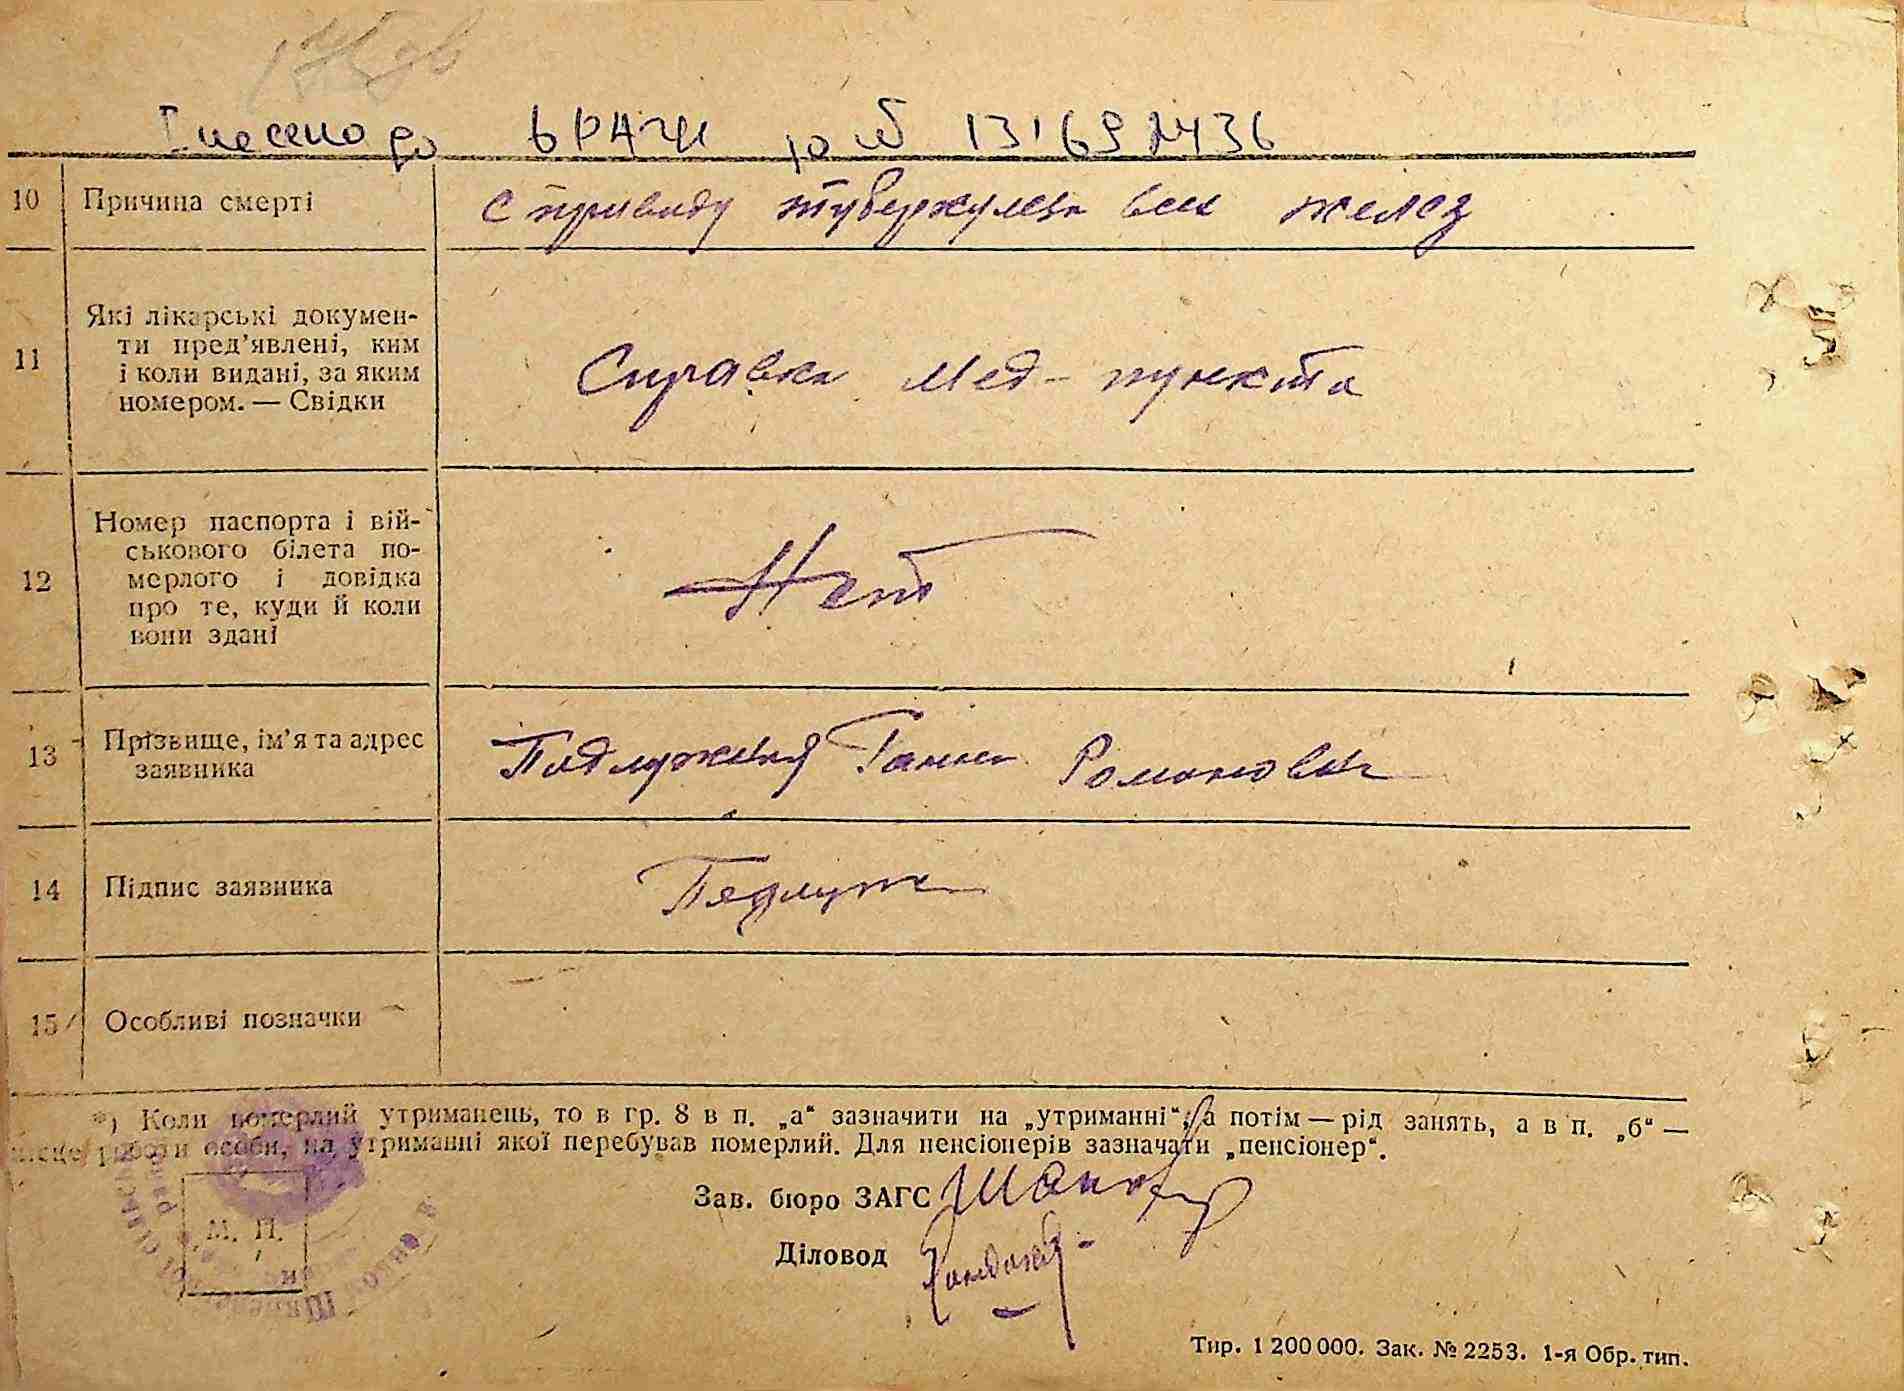 Внесено до ДРАЦС за № 131692436
10 Причина смерті
с приводу туберкулеза всех желез
11 Які лікарські докумен-
ти пред’явлені, ким
і коли видані, за яким
номером. — Свідки
Справка мед-пункта
12 Номер паспорта і вій-
ськового білета по-
мерлого і довідка
про те, куди й коли
вони здані
Нет
13 Прізвище, ім’я та адрес
заявника
Подлужная Ганна Романовна
14 Підпис заявника
15 Особливі позначки
*) Коли померлий утриманець, то в гр. 8 в п. „а“ зазначити на „утриманні“, а потім — рід занять, а в п. „б“ —
місце роботи особи, на утриманні якої перебував померлий. Для пенсіонерів зазначати „пенсіонер“.
Зав. бюро ЗАГС
М. П.
Діловод
Тир. 1 200 000. Зак. № 2253. 1-я Обр. тип.